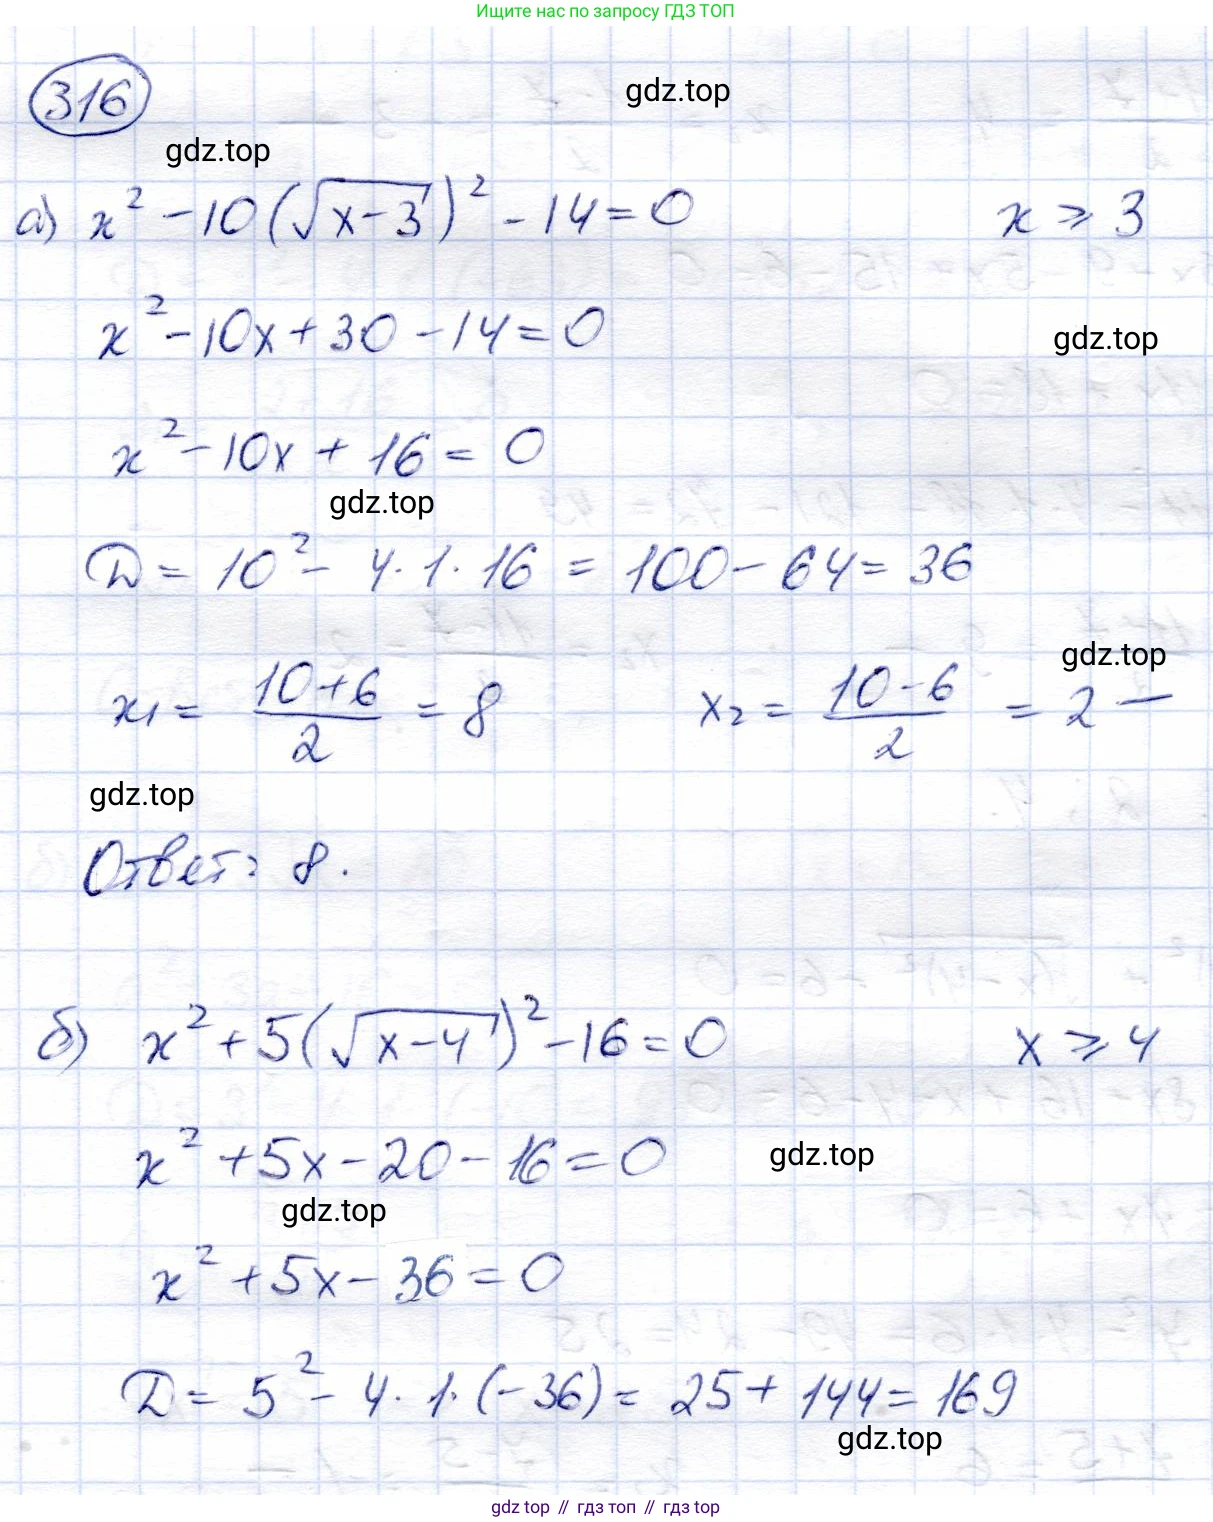 Ищите нас по запросу ГДЗ ТОП
316
gdz.top
gdz.top
а) x² - 10(√(x-3))² - 14 = 0    x ⩾ 3
x² - 10x + 30 - 14 = 0
gdz.top
x² - 10x + 16 = 0
gdz.top
D = 10² - 4·1·16 = 100 - 64 = 36
gdz.top
x₁ = (10+6)/2 = 8    x₂ = (10-6)/2 = 2 —
gdz.top
Ответ: 8.
б) x² + 5(√(x-4))² - 16 = 0    x ⩾ 4
x² + 5x - 20 - 16 = 0
gdz.top
gdz.top
x² + 5x - 36 = 0
D = 5² - 4·1·(-36) = 25 + 144 = 169
gdz.top
gdz top // гдз топ // гдз top